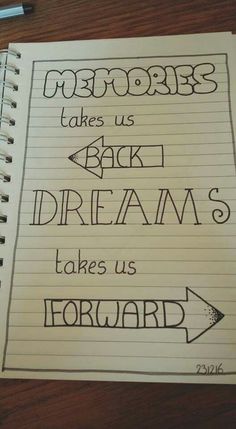 MEMORIES
takes us
BACK
DREAMS
takes us
FORWARD
231216